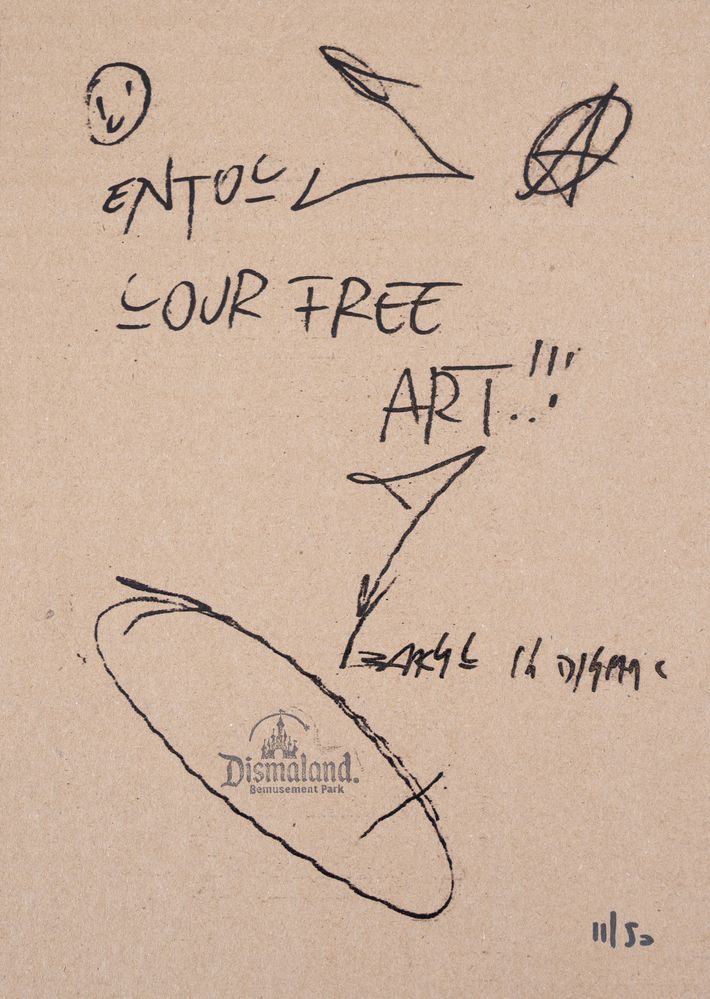 ENTOY
YOUR FREE
ART..!!!
Dismaland.
Bemusement Park
11/50